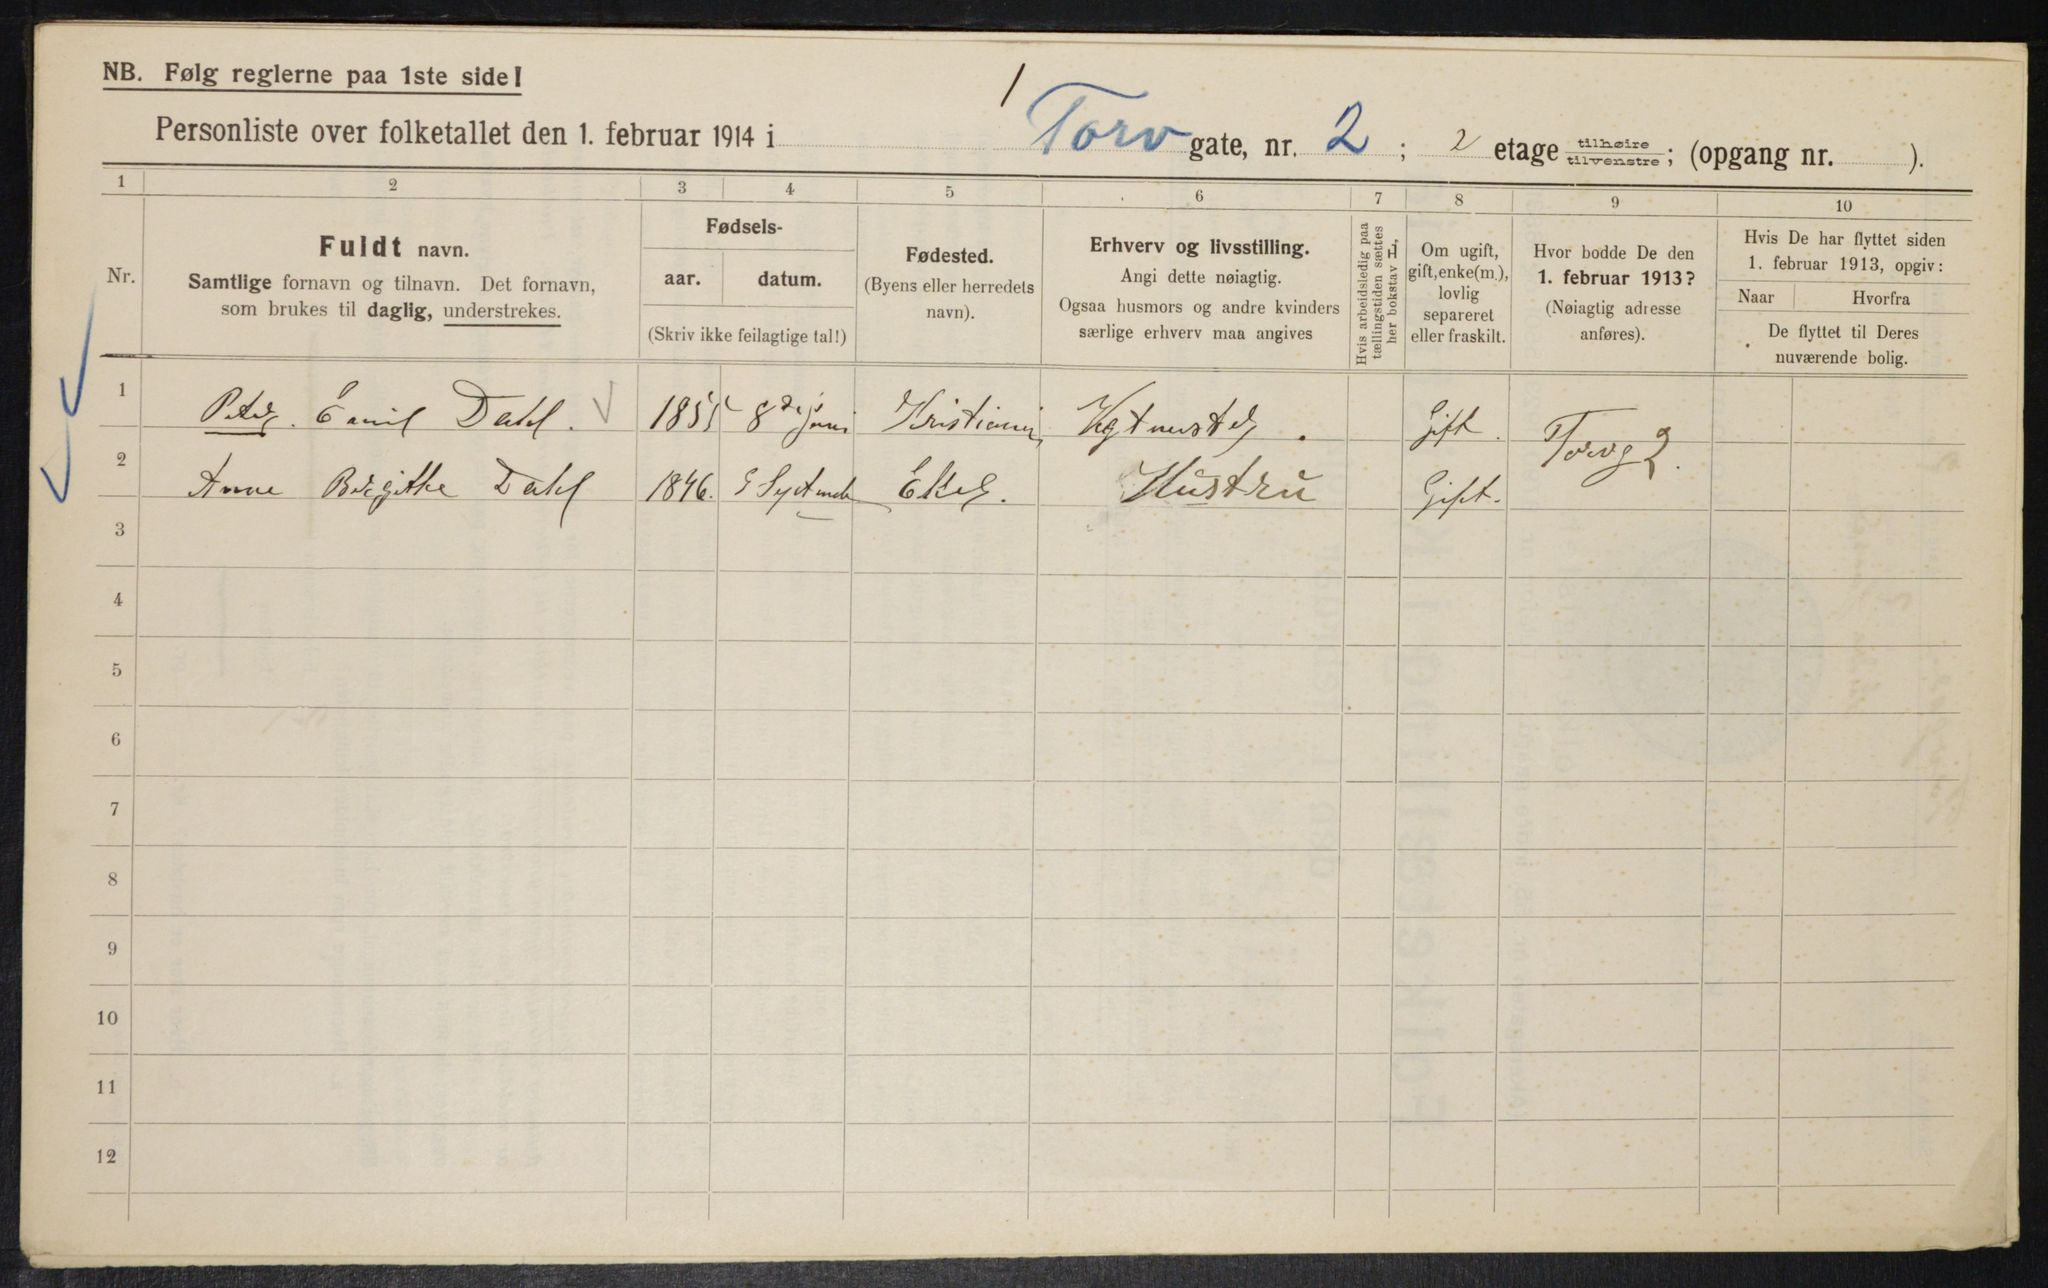 NB. Følg reglerne paa 1ste side!
Personliste over folketallet den 1. februar 1914 i Torv gate, nr. 2; 2 etage tilhøire tilvenstre; (opgang nr. ).
1 2 3 4 5 6 7 8 9 10
Nr.
Fuldt navn.
Samtlige fornavn og tilnavn. Det fornavn,
som brukes til daglig, understrekes.
Fødsels-
aar. datum.
(Skriv ikke feilagtige tal!)
Fødested.
(Byens eller herredets
navn).
Erhverv og livsstilling.
Angi dette nøiagtig.
Ogsaa husmors og andre kvinders
særlige erhverv maa angives
Hvis arbeidsledig paa
tællingstiden sættes
her bokstav L.
Om ugift,
gift, enke(m.),
lovlig
separeret
eller fraskilt.
Hvor bodde De den
1. februar 1913?
(Nøiagtig adresse
anføres).
Hvis De har flyttet siden
1. februar 1913, opgiv:
Naar Hvorfra
De flyttet til Deres
nuværende bolig.
1 Peter Emil Dahl. 1855 8de juni Kristiania Gift. Torvg 2.
2 Anne Birgitte Dahl 1846. Hustru Gift.
3
4
5
6
7
8
9
10
11
12